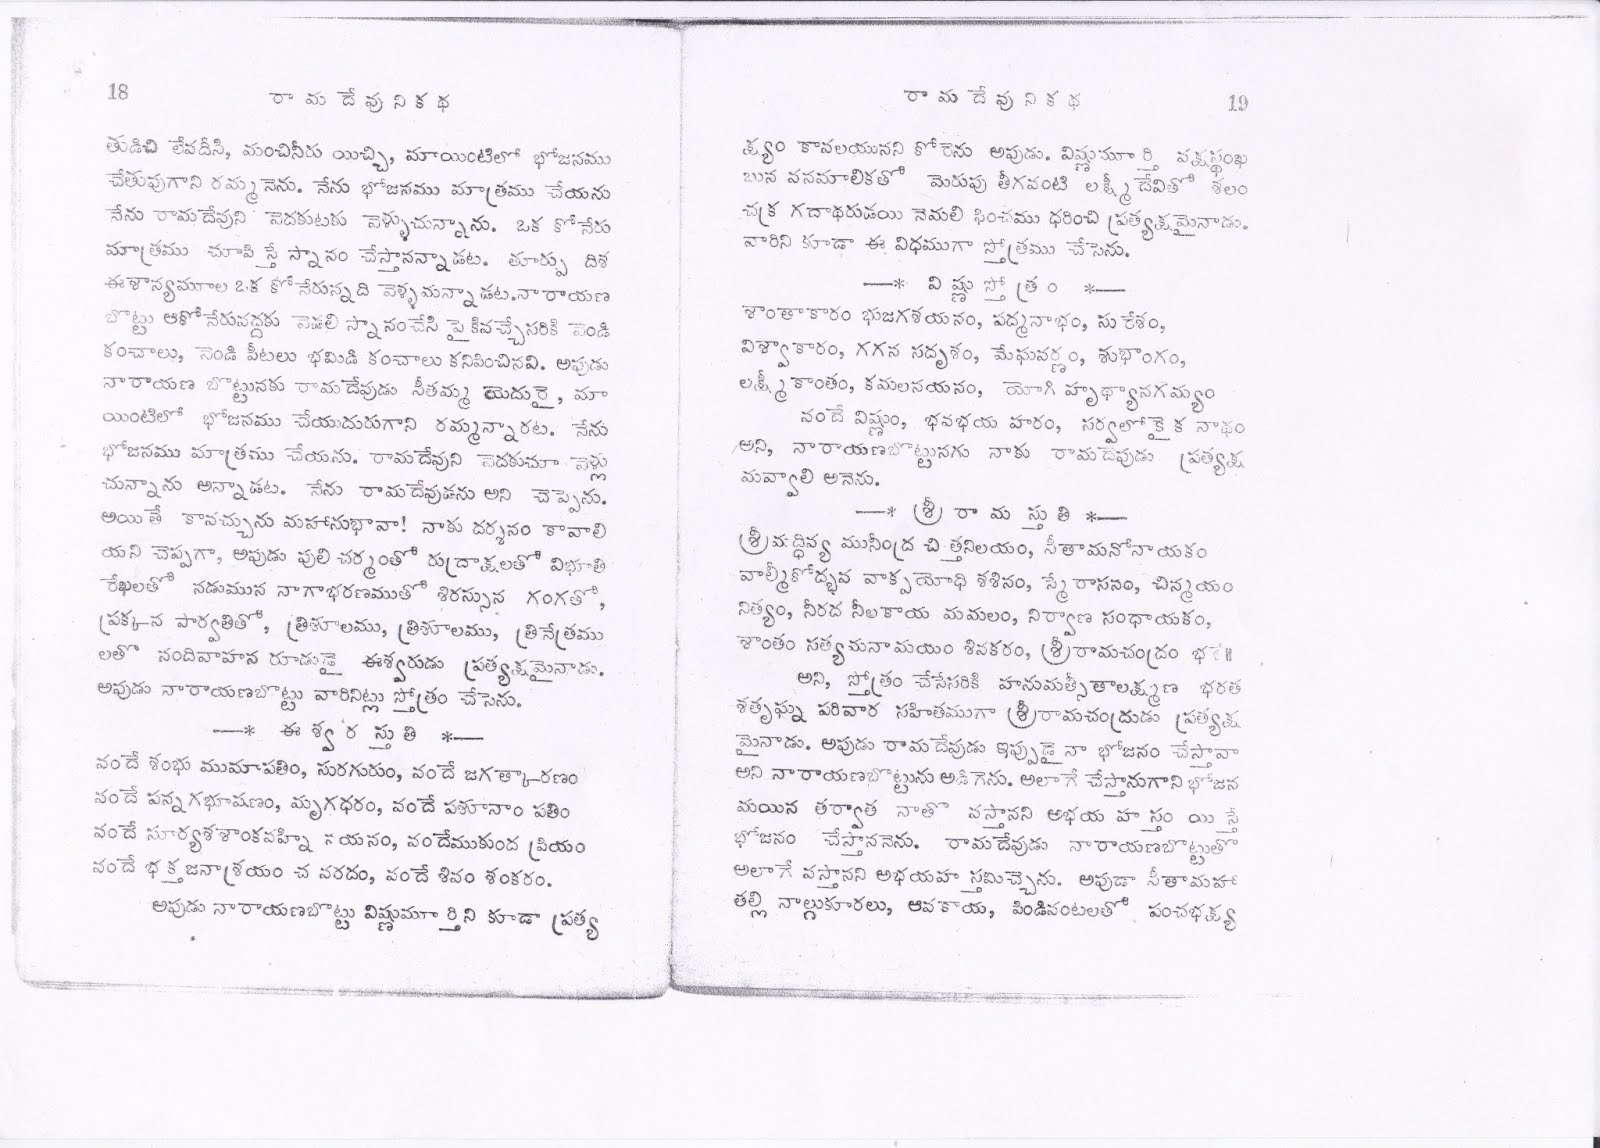 18
రామదేవునికథ
తుడిచి లేవదీసి, మంచినీరు యిచ్చి, మాయింటిలో భోజనము
చేతువుగాని రమ్మనెను. నేను భోజనము మాత్రము చేయను
నేను రామదేవుని వెదకుటకు వెళ్ళుచున్నాను. ఒక కోనేరు
మాత్రము చూపిస్తే స్నానం చేస్తానన్నాడట. తూర్పు దిశ
ఈశాన్యమూల ఒక కోనేరున్నది వెళ్ళమన్నాడట.నారాయణ
బొట్టు ఆకోనేరువద్దకు వెడలి స్నానంచేసి పైకివచ్చేసరికి వెండి
కంచాలు, వెండి పీటలు భమిడి కంచాలు కనిపించినవి. అపుడు
నారాయణ బొట్టునకు రామదేవుడు సీతమ్మ యెదురై, మా
యింటిలో భోజనము చేయుదురుగాని రమ్మన్నారట. నేను
భోజనము మాత్రము చేయను. రామదేవుని వెదకుచూ వెళ్లు
చున్నాను అన్నాడట. నేను రామదేవుడను అని చెప్పెను.
అయితే కానచ్చును మహానుభావా! నాకు దర్శనం కావాలి
యని చెప్పగా, అపుడు పులి చర్మంతో రుద్రాక్షలతో విభూతి
రేఖలతో నడుమున నాగాభరణముతో శిరస్సున గంగతో,
ప్రక్కన పార్వతితో, త్రిశూలము, త్రిశూలము, త్రినేత్రము
లతో నందివాహన రూడుడై ఈశ్వరుడు ప్రత్యక్షమైనాడు.
అపుడు నారాయణబొట్టు వారినిట్లు స్తోత్రం చేసెను.
—* ఈశ్వరస్తుతి *—
వందే శంభు ముమాపతిం, సురగురుం, వందే జగత్కారణం
వందే పన్నగభూషణం, మృగధరం, వందే పశూనాం పతిం
వందే సూర్యశశాంకవహ్ని నయనం, వందేముకుంద ప్రియం
వందే భక్తజనాశ్రయం చ వరదం, వందే శివం శంకరం.
అపుడు నారాయణబొట్టు విష్ణుమూర్తిని కూడా ప్రత్య
రామదేవునికథ
19
క్ష్యం కావలయునని కోరెను అపుడు. విష్ణుమూర్తి వక్షస్థంఖ
బున వనమాలికతో మెరుపు తీగవంటి లక్ష్మీదేవితో శలం
చక్ర గదాధరుడయి నెమలి పింఛము ధరించి ప్రత్యక్షమైనాడు.
వారిని కూడా ఈ విధముగా స్తోత్రము చేసెను.
—* విష్ణుస్తోత్రం *—
శాంతాకారం భుజగశయనం, పద్మనాభం, సురేశం,
విశ్వాకారం, గగన సదృశం, మేఘవర్ణం, శుభాంగం,
లక్ష్మీకాంతం, కమలనయనం, యోగి హృథ్యానగమ్యం
వందే విష్ణుం, భవభయ హరం, సర్వలోకైక నాథం
అని, నారాయణబొట్టునగు నాకు రామదేవుడు ప్రత్యక్ష
మవ్వాలి అనెను.
—* శ్రీరామస్తుతి *—
శ్రీమద్దివ్య మునీంద్ర చిత్తనిలయం, సీతామనోనాయకం
వాల్మీకోద్భవ వాక్పయోధి శశినం, స్మేరాననం, చిన్మయం
నిత్యం, నీరద నీలకాయ మమలం, నిర్వాణ సంధాయకం,
శాంతం సత్యమనామయం శివకరం, శ్రీరామచంద్రం భజే॥
అని, స్తోత్రం చేసేసరికి హనుమత్సీతాలక్ష్మణ భరత
శతృఘ్ను పరివార సహితముగా శ్రీరామచంద్రుడు ప్రత్యక్ష
మైనాడు. అపుడు రామదేవుడు ఇప్పుడైనా భోజనం చేస్తావా
అని నారాయణబొట్టును అడిగెను. అలాగే చేస్తానుగాని భోజన
మయిన తర్వాత నాతో వస్తానని అభయ హస్తం యిస్తే
భోజనం చేస్తాననెను. రామదేవుడు నారాయణబొట్టుతో
అలాగే వస్తానని అభయహస్తమిచ్చెను. అపుడా సీతామహా
తల్లి నాల్గుకూరలు, ఆవకాయ, పిండివంటలతో పంచభక్ష్య